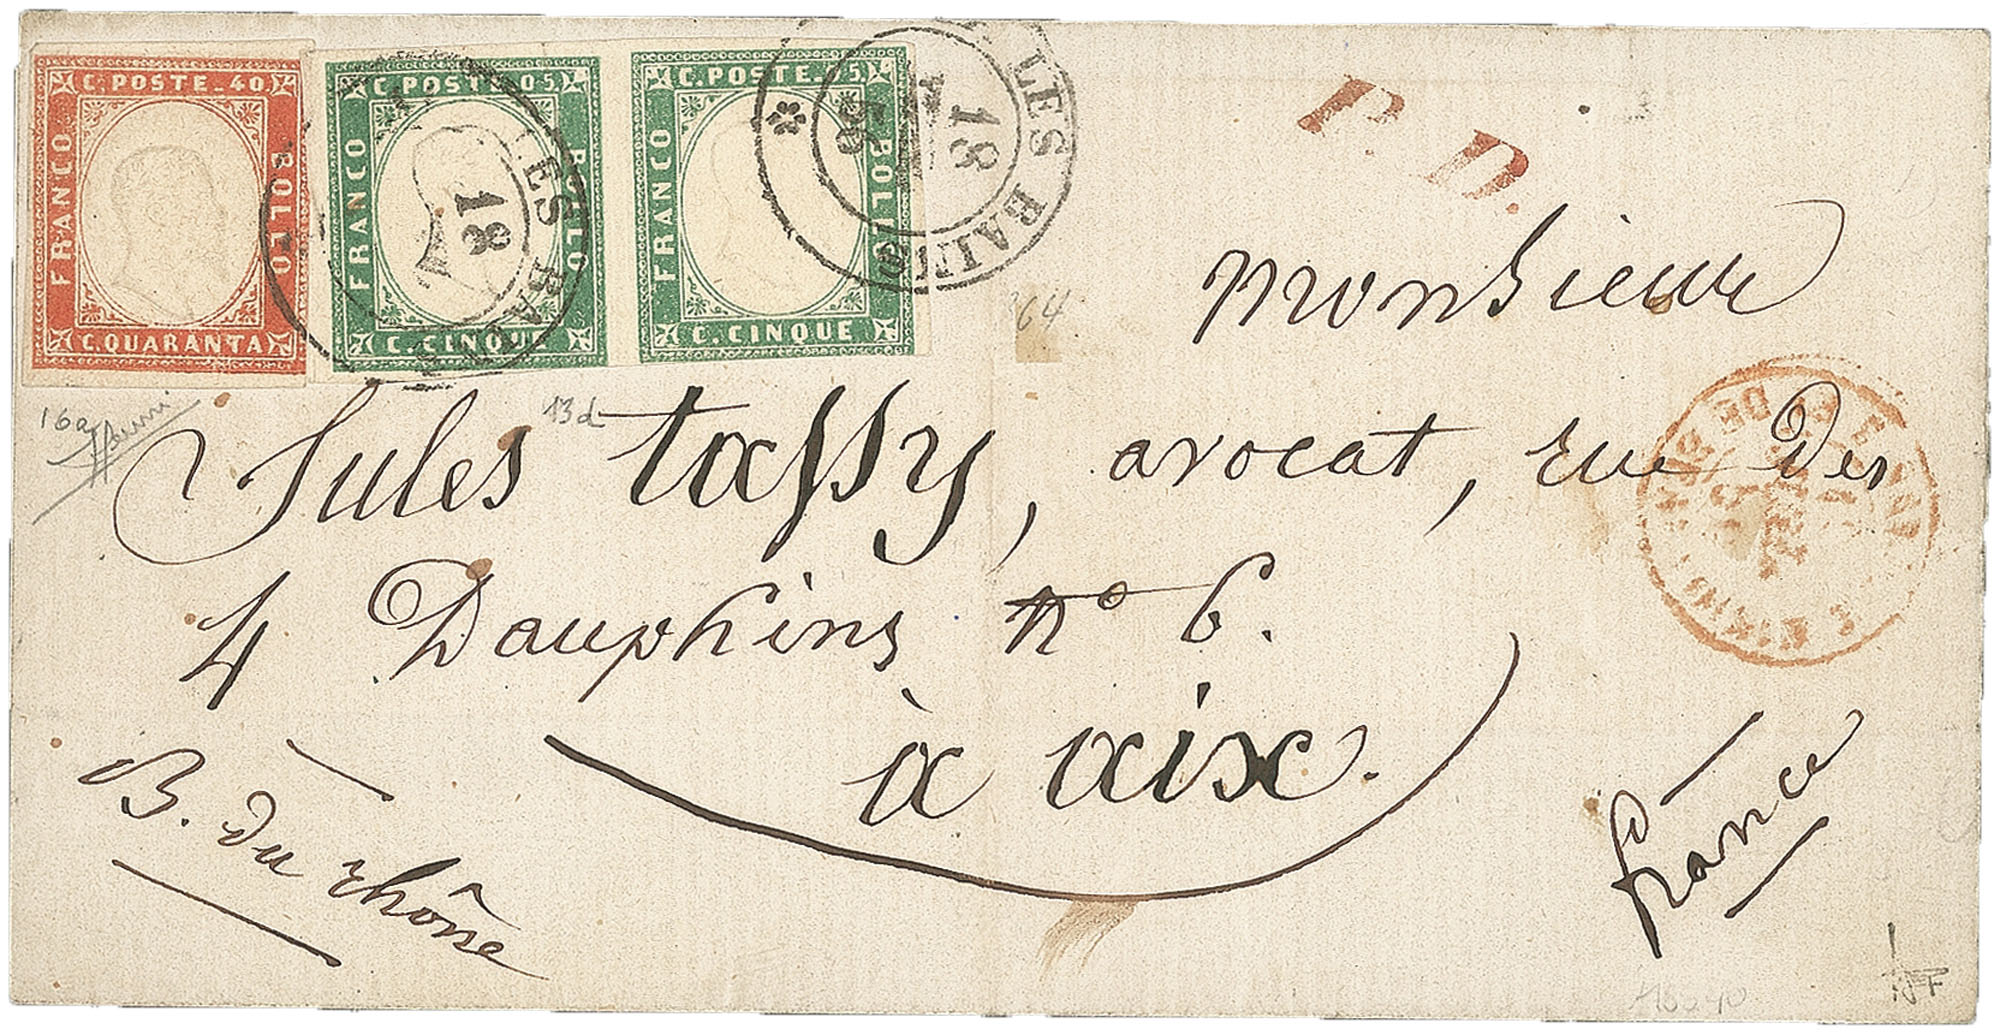 C. POSTE. 40.
FRANCO
BOLLO
C. QUARANTA
C. POSTE. 05.
FRANCO
BOLLO
C. CINQUE
LES BAINS
18
C. POSTE. 05.
FRANCO
BOLLO
C. CINQUE
LES BAINS
18
56
P. D.
Monsieur
364
16a
13d
Jules tassy, avocat, rue des
4 Dauphins n° 6.
à aix.
B. du rhône
france